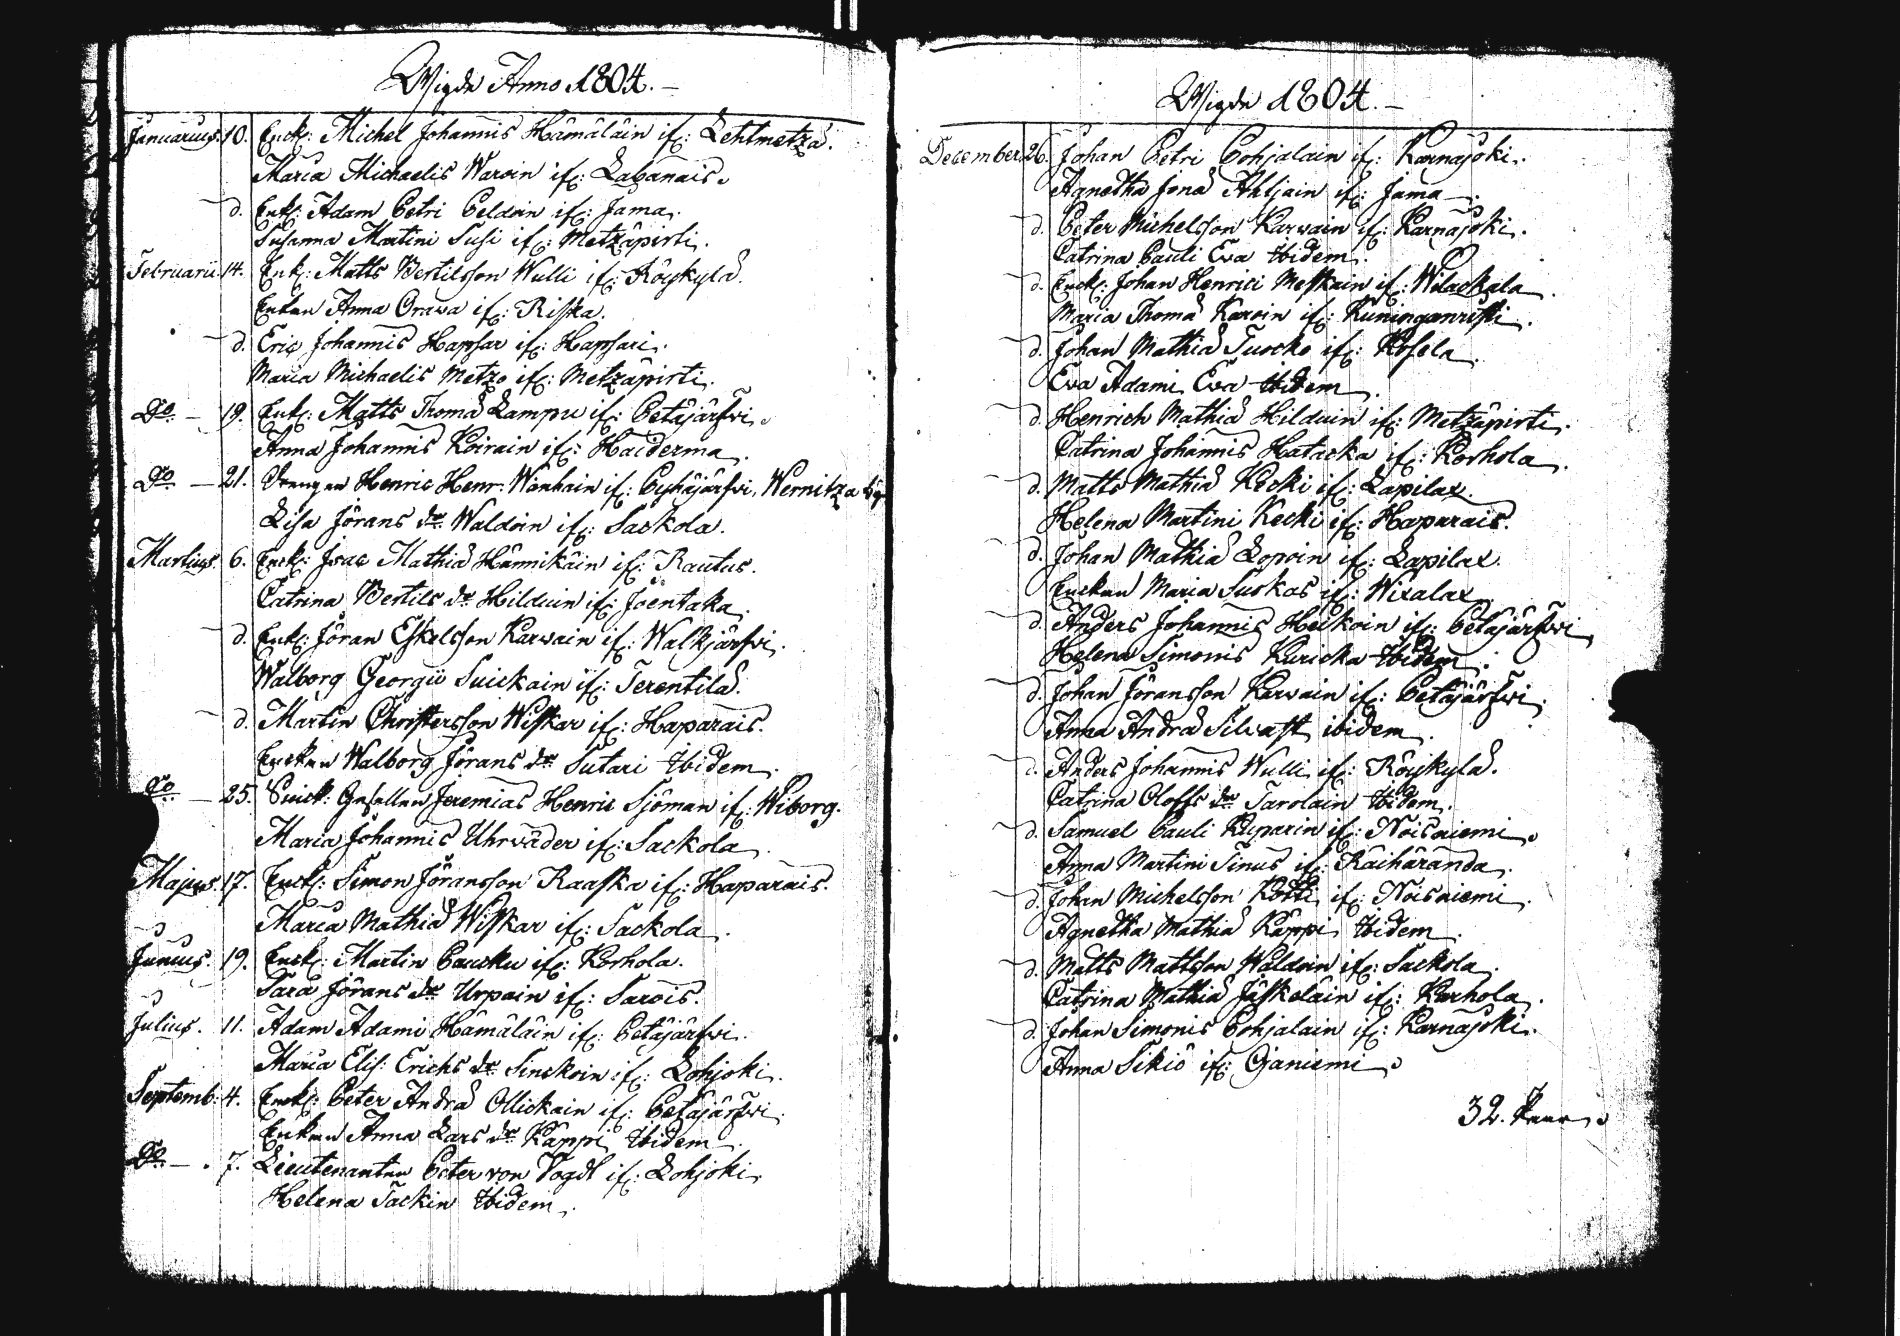 Wigde Anno 1804.
Januarius. 10. Enck: Michel Johannis Hämäläin if: Lehtmetzä.
Maria Michaelis Waroin if: Labanais.
d. Enk: Adam Petri Peldoin if: Jama.
Susanna Martini Susi if: Metzäpirti.
Februarii. 14. Enk: Matts Bertilsson Wulli if: Röiskylä.
Enkan Anna Orawa if: Riska.
d. Eric Johannis Hapsar if: Hapsari.
Maria Michaelis Metzo if: Metzäpirti.
Do — 19. Enk: Matts Thomæ Lampu if: Petäjärfwi.
Anna Johannis Koirain if: Haiderma.
Do — 21. Drengen Henric Henr: Wanhain if: Pyhäjärfwi, Wernitza
Lisa Jörans dr Waldoin if: Sackola.
Martius. 6. Enck: Isac Mathiæ Hännikäin if: Rautus.
Catrina Bertils dr Hilduin if: Joentaka.
d. Enk: Jöran Eskelsson Karwain if: Walkjärfwi.
Walborg Georgii Suickain if: Terentilä.
d. Martin Christersson Wiskar if: Haparais.
Enckan Walborg Jörans dr Sutari Ibidem.
Do — 25. Snick: Gesellen Jeremias Henric Sjöman if: Wiborg.
Maria Johannis Uhrwäder if: Sackola.
Majus. 17. Enck: Simon Jöransson Raaska if: Haparais.
Maria Mathiæ Wiskar if: Sackola.
Junius. 19. Enck: Martin Paucku if: Korhola.
Sara Jörans dr Urpain if: Sarois.
Julius. 11. Adam Adami Hämäläin if: Petäjärfwi.
Maria Elis: Erichs dr Sinckoin if: Lohjoki.
Septemb: 4. Enck: Peter Andræ Ollickain if: Petäjärfwi.
Enkan Anna Lars dr Käppi Ibidem.
Do — . 7. Lieutenanten Peter von Vogdt if: Lohjoki.
Helena Tackin Ibidem.
Wigde 1804.
December 26. Johan Petri Pohjalain if: Karnajoki.
Agnetha Jonæ Ahtjain if: Jama.
d. Peter Michelsson Karwain if: Karnajoki.
Catrina Pauli Ewa Ibidem.
d. Enck: Johan Henrici Meskain if: Wilackala.
Maria Thomæ Karoin if: Kuninganristi.
d. Johan Mathiæ Tuocko if: Kosela.
Eva Adami Ewa Ibidem.
d. Henrich Mathiæ Hilduin if: Metzäpirti.
Catrina Johannis Hatacka if: Korhola.
d. Matts Mathiæ Kecki if: Lapilax.
Helena Martini Kecki if: Haparais.
d. Johan Mathiæ Lopoin if: Lapilax.
Enckan Maria Suskas if: Wixalax.
d. Anders Johannis Heikoin if: Petäjärfwi
Helena Simonis Kuricka Ibidem.
d. Johan Jöransson Karwain if: Petäjärfwi.
Anna Andræ Silvast ibidem.
d. Anders Johannis Wulli if: Röiskylä.
Catrina Oloffs dr Tarolain Ibidem.
d. Samuel Pauli Kuparin if: Noisniemi.
Anna Martini Sinus if: Räihärända.
d. Johan Michelsson Kotti if: Noisniemi.
Agnetha Mathiæ Käppi Ibidem.
d. Matts Mattsson Waldoin if: Sackola.
Catrina Mathiæ Jäskeläin if: Karhola.
d. Johan Simonis Pohjalain if: Karnajoki.
Anna Sikiö if: Ojaniemi.
32. Paar.